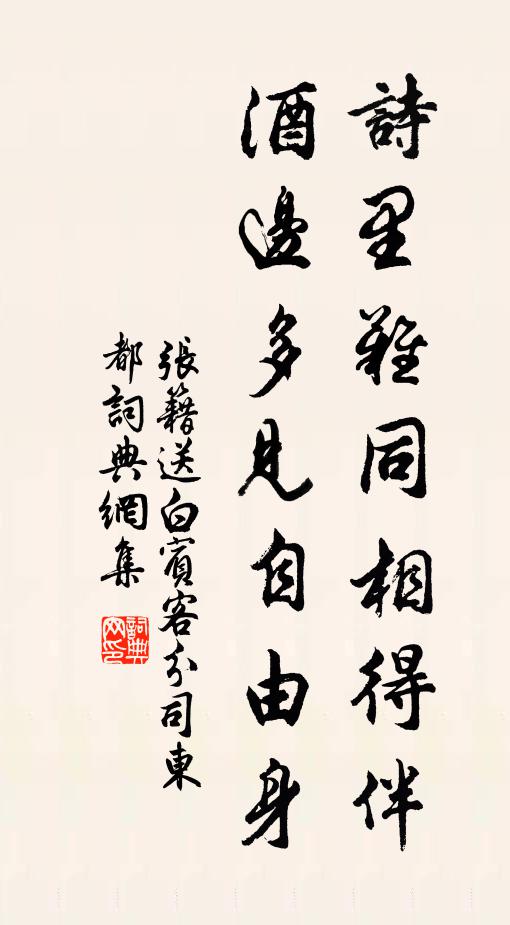 詩里難同相得伴
酒邊多見自由身
張籍送白賓客分司東
都詞典網集
詞典网印